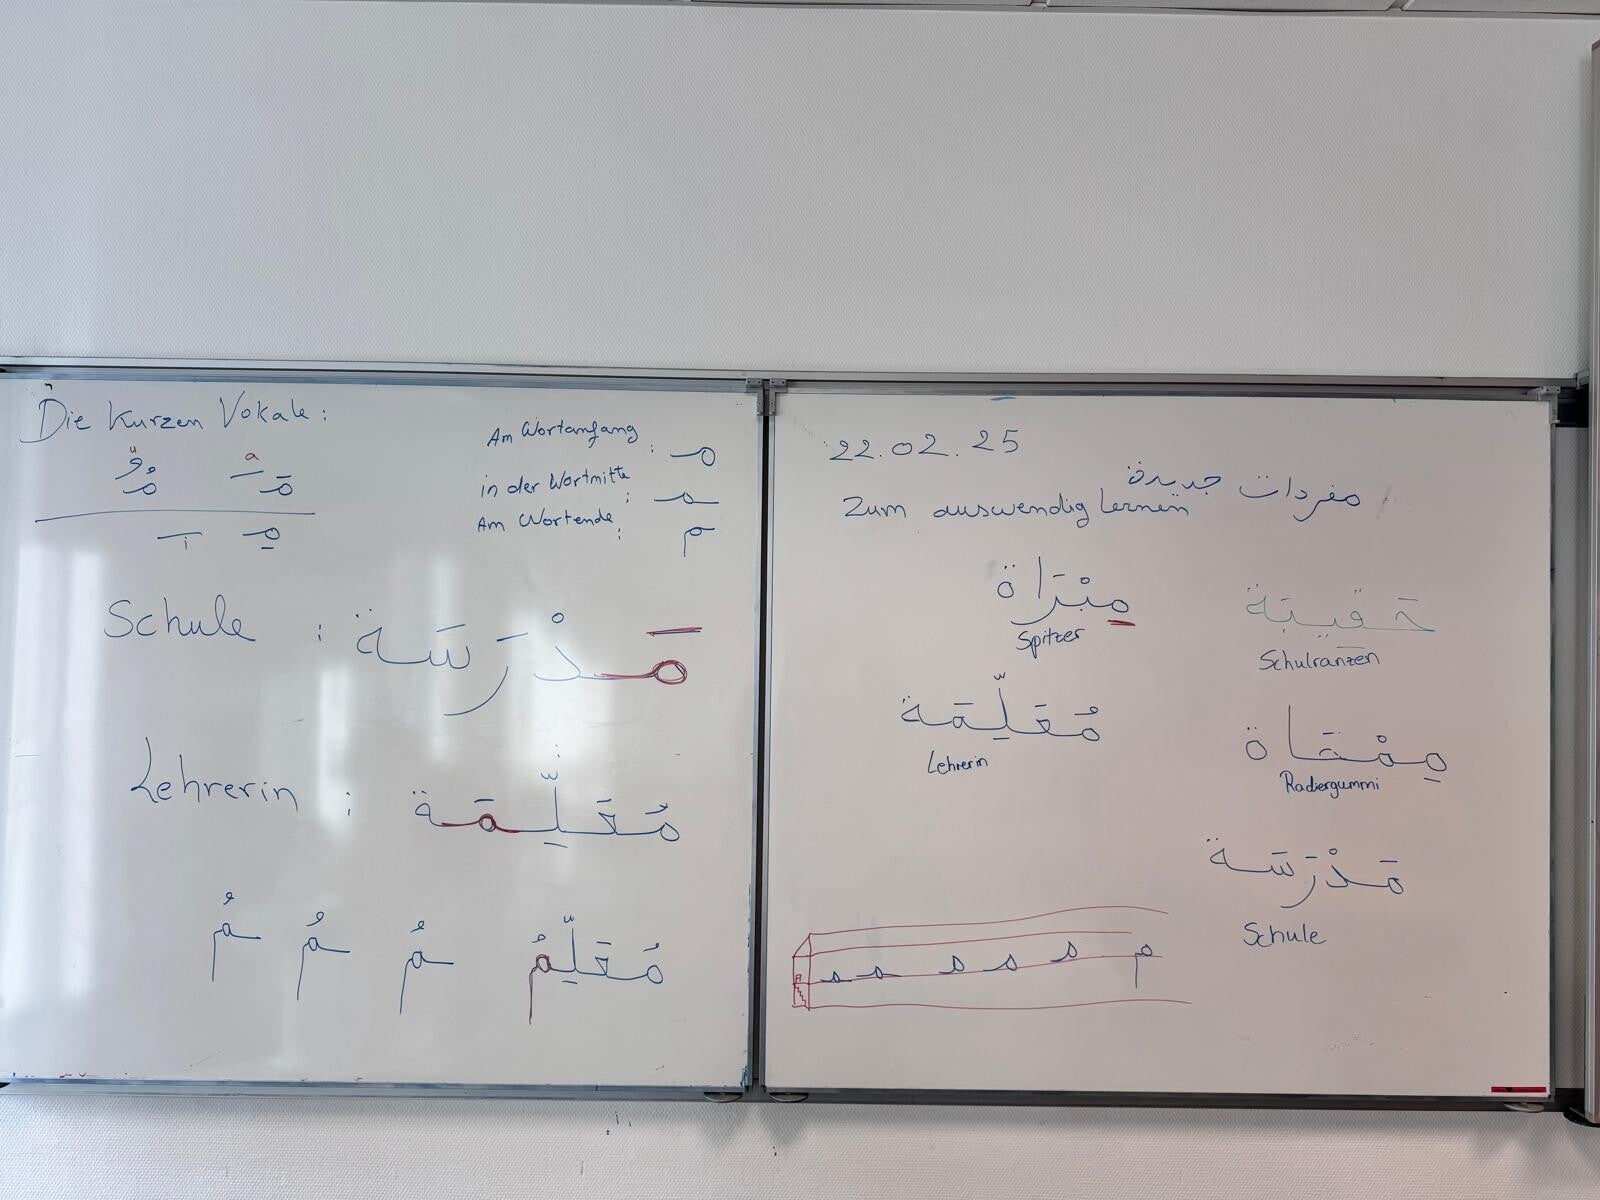 Die Kurzen Vokale:
ü a
مُ مَ
مِ
i
Am Wortanfang : مـ
in der Wortmitte : ـمـ
Am Wortende : م
Schule : مَدْرَسَة
Lehrerin : مُعَلِّمَة
مُعَلِّمُ مُ مُ مُ
22.02.25
مفردات جديدة
Zum auswendig lernen
مِبْرَاة
Spitzer
حَقيبَة
Schulranzen
مُعَلِّمَة
Lehrerin
مِمْحَاة
Radiergummi
مَدْرَسَة
Schule
م مـ مـ مـ ـمـ ـمـ